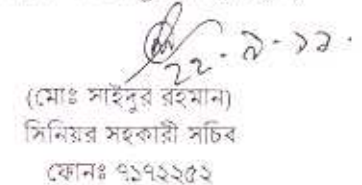 ২২.৯.১১.
(মোঃ সাইদুর রহমান)
সিনিয়র সহকারী সচিব
ফোনঃ ৭১৭২২৫২